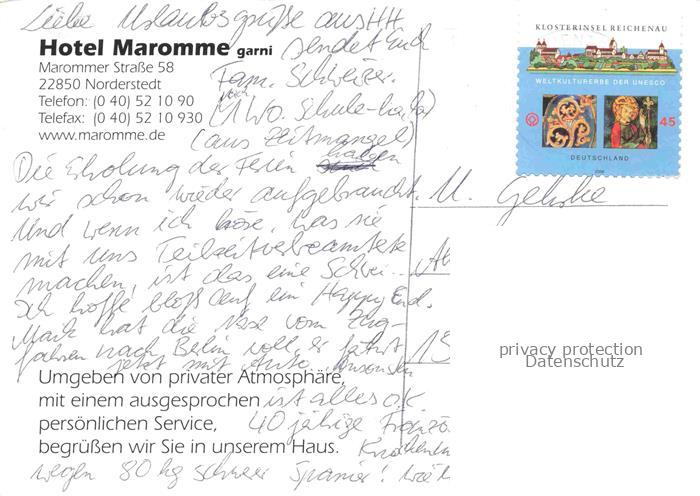 Liebe Urlaubsgrüße aus HH
sendet Euch
Fam. Schweizer.
(1 Wo. Schule - haha)
(aus Zeitmangel)
Hotel Maromme garni
Marommer Straße 58
22850 Norderstedt
Telefon: (0 40) 52 10 90
Telefax: (0 40) 52 10 930
www.maromme.de
Die Erholung der Ferien haben
wir schon wieder aufgebraucht.
Und wenn ich höre, was sie
mit uns Teilzeitverbeamtete
machen, ist das eine Schwei..
Ich hoffe bloß auf ein Happy End.
Maik hat die Nase vom Zug-
fahren nach Berlin voll, er fährt
jetzt mit Auto. Ansonsten
ist alles o.k.
40 jährige
wegen 80 kg schwer Spanier!
Umgeben von privater Atmosphäre,
mit einem ausgesprochen
persönlichen Service,
begrüßen wir Sie in unserem Haus.
KLOSTERINSEL REICHENAU
WELTKULTURERBE DER UNESCO
45
DEUTSCHLAND
M. Gehrke
privacy protection
Datenschutz